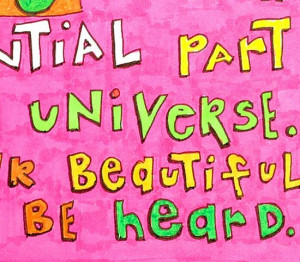 NTIAL PART
UNiVERSE.
R BEAUTIFUL
BE heARD.